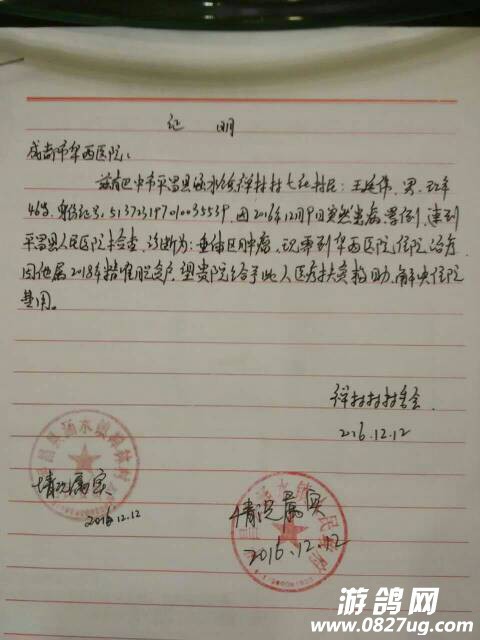 证 明
成都市华西医院:
兹有巴中市平昌县涵水镇祥村七社村民:王延伟,男,现年
46岁,身份证号:513723197010035539,因2016年12月9日突然患病晕倒,送到
平昌县人民医院检查,诊断为:垂体区肿瘤,现来到华西医院住院治疗
因他属2018年精准脱贫户,望贵院给予此人医疗扶贫救助,解决住院
费用。
祥村村村委会
2016.12.12
情况属实
2016.12.12
情况属实
2016.12.12
游鸽网
www.0827ug.com